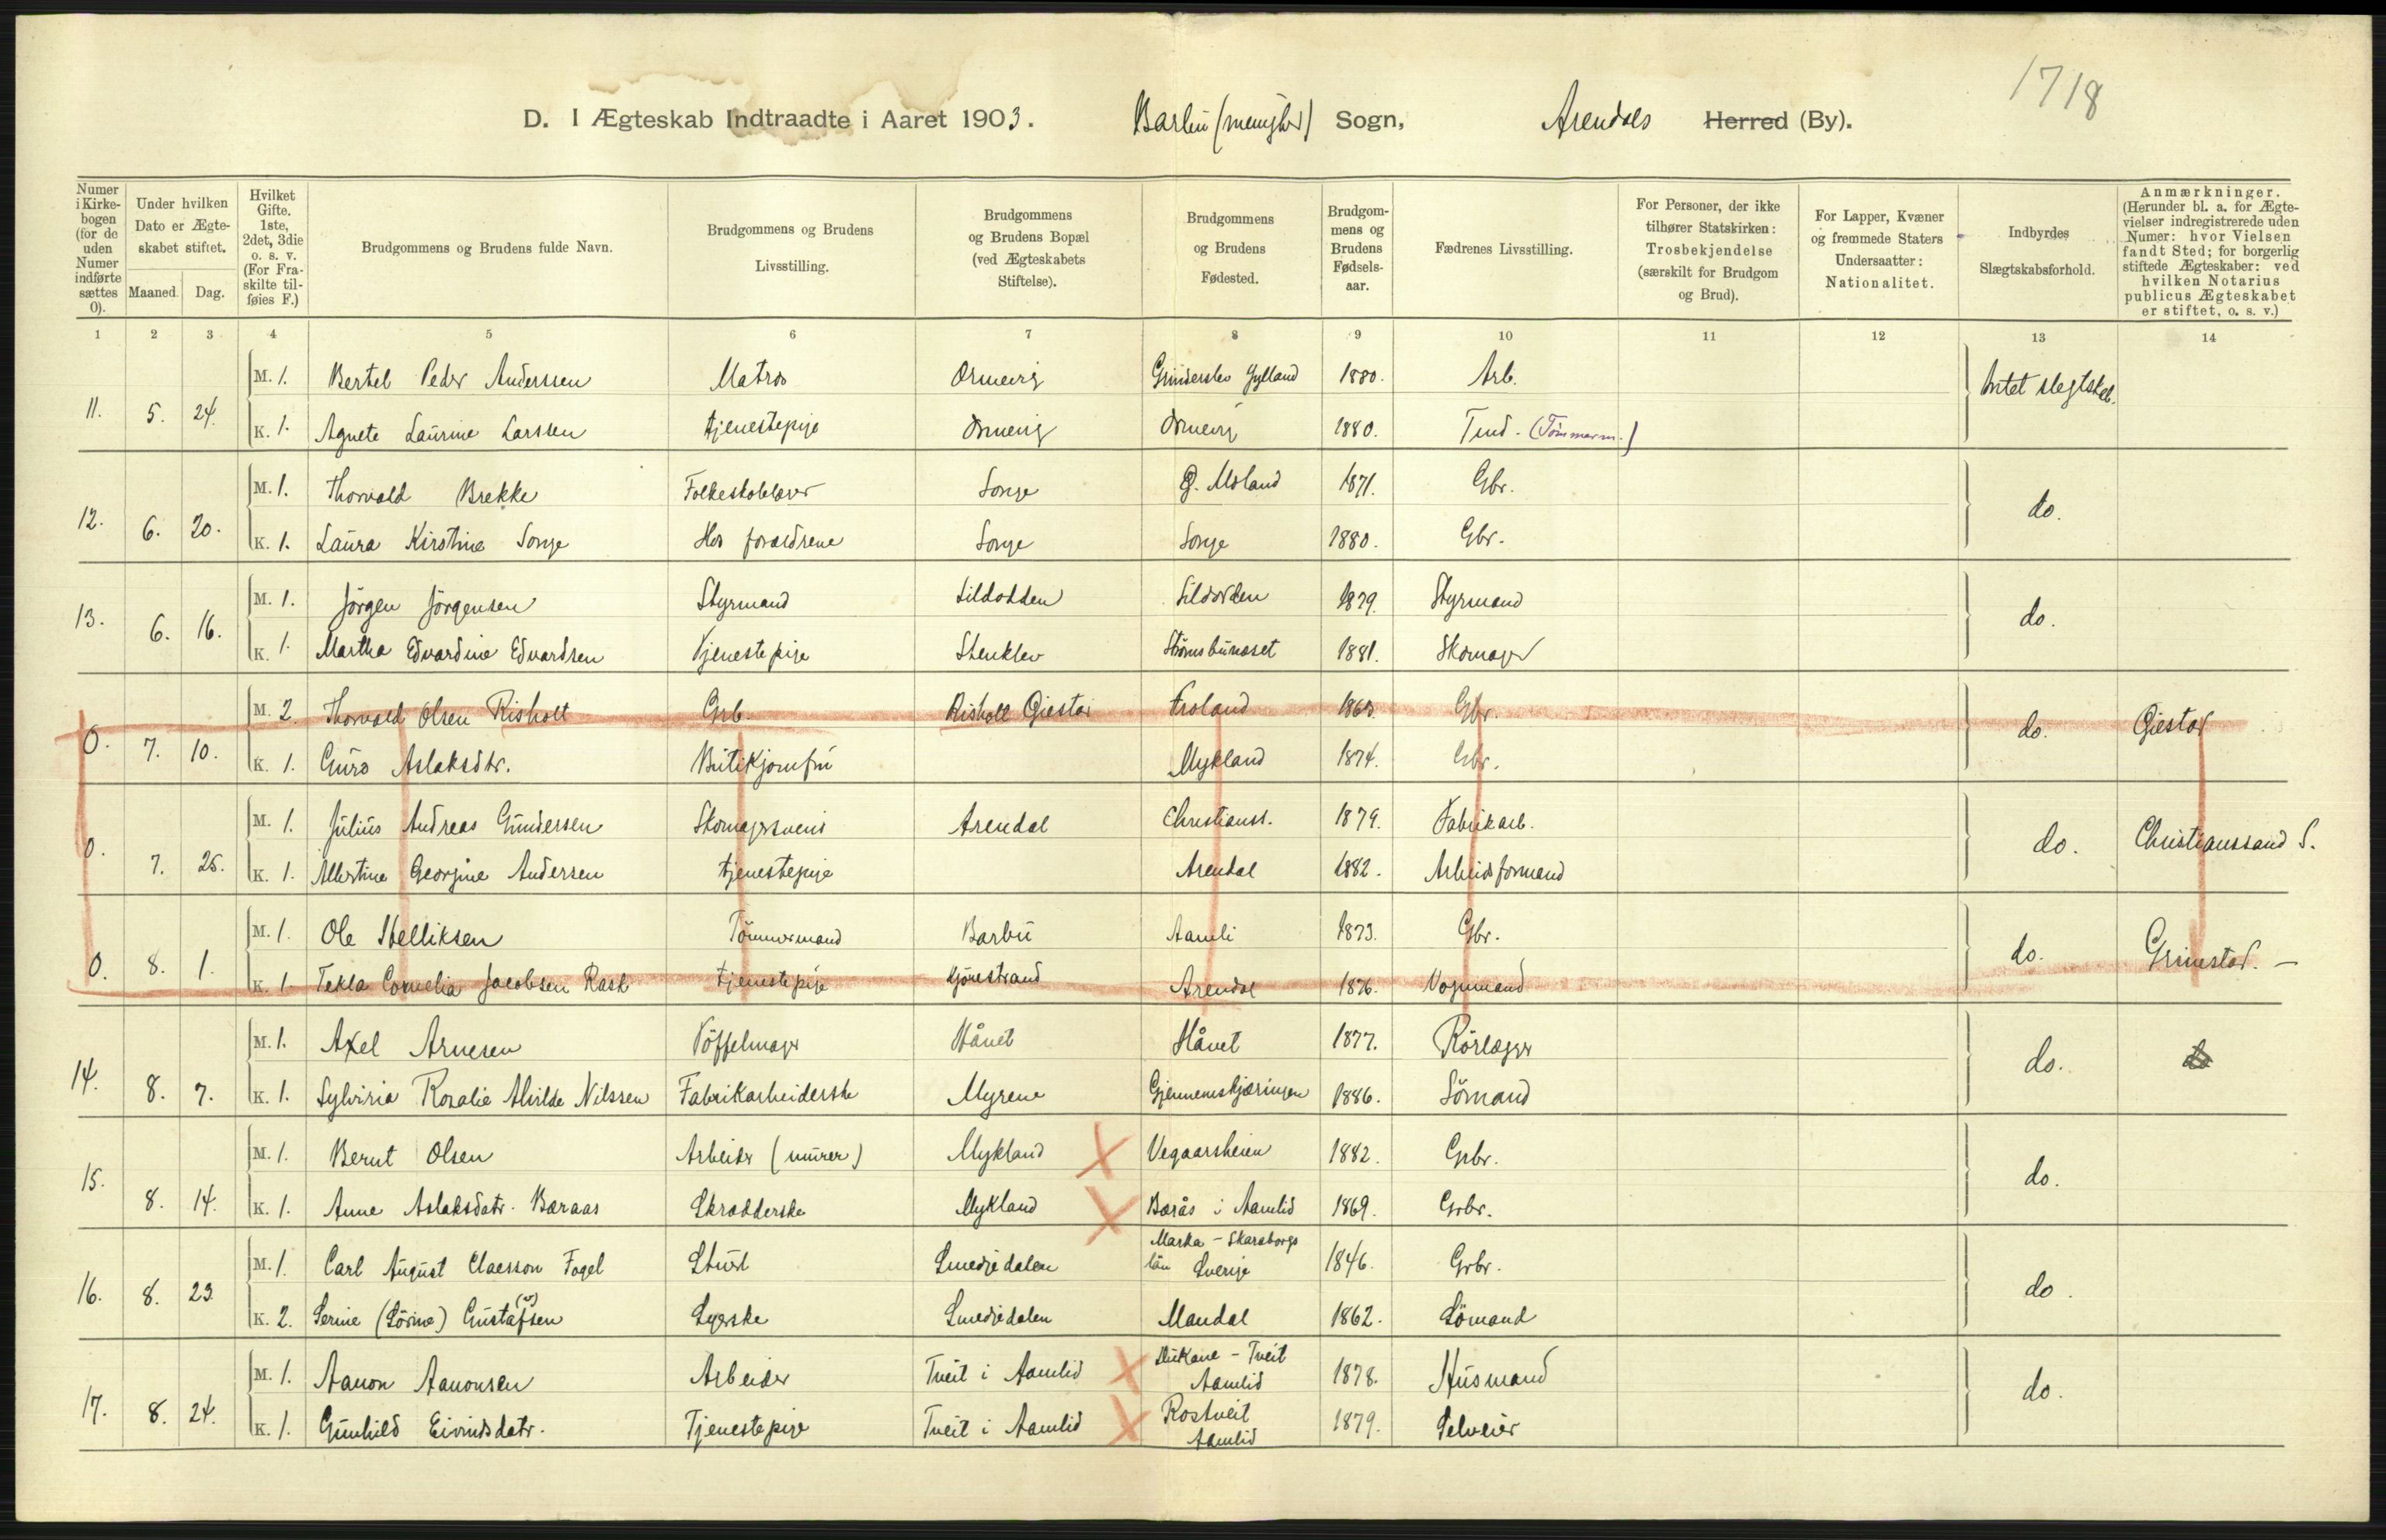 1718
D. I Ægteskab Indtraadte i Aaret 1903. Barbu (menighed) Sogn, Arendals Herred (By).
Numer i Kirkebogen (for de uden Numer indførte sættes 0).
Under hvilken Dato er Ægteskabet stiftet.
Maaned. Dag.
Hvilket Gifte. 1ste, 2det, 3die o. s. v. (For Fraskilte tilføies F.)
Brudgommens og Brudens fulde Navn.
Brudgommens og Brudens Livsstilling.
Brudgommens og Brudens Bopæl (ved Ægteskabets Stiftelse).
Brudgommens og Brudens Fødested.
Brudgommens og Brudens Fødselsaar.
Fædrenes Livsstilling.
For Personer, der ikke tilhører Statskirken: Trosbekjendelse (særskilt for Brudgom og Brud).
For Lapper, Kvæner og fremmede Staters Undersaatter: Nationalitet.
Indbyrdes Slægtskabsforhold.
Anmærkninger. (Herunder bl. a. for Ægtevielser indregistrerede uden Numer: hvor Vielsen fandt Sted; for borgerlig stiftede Ægteskaber: ved hvilken Notarius publicus Ægteskabet er stiftet, o. s. v.)
1 2 3 4 5 6 7 8 9 10 11 12 13 14
M. 1. Bertel Peder Anderssen Matros Ormevig Grinderslev Jylland 1880. Arb. Intet slegtskab.
11. 5. 24.
K. 1. Agnete Laurine Larssen tjenestepige Ormevig Ormevig 1880. Tmd. (Tømmerm.)
M. 1. Thorvald Brekke Folkeskolelærer Songe Ø. Moland 1871. Gbr.
12. 6. 20. do.
K. 1. Laura Kirstine Songe Hos forældrene Songe Songe 1880. Gbr.
M. 1. Jørgen Jørgensen Styrmand Sildodden Sildodden 1879. Styrmand
13. 6. 16. do.
K. 1. Martha Edvardine Edvardsen Tjenestepige Stenklev Strømsbunæset 1881. Skomager
M. 2. Thorvald Olsen Risholt Grb. Risholt Øiestad Froland 1868. Gbr.
0. 7. 10. do. Øiestad
K. 1. Guro Aslaksdtr. Butikjomfru Mykland 1874. Gbr.
M. 1. Julius Andreas Gundersen Skomagersvend Arendal Christianss. 1879. Fabrikarb.
0. 7. 25. do. Christianssand S.
K. 1. Albertine Georgine Andersen tjenestepige Arendal 1882. Arbeidsformand
M. 1. Ole Helliksen Tømmermand Barbu Aamli 1873. Gbr.
0. 8. 1. do. Grimstad. —
K. 1. Tekla Cornelia Jacobsen Rask tjenestepige Kjønestrand Arendal 1876. Vognmand
M. 1. Axel Arnesen Tøffelmager Hånet Hånet 1877. Rørlægger
14. 8. 7. do.
K. 1. Sylviria Rosalie Alvilde Nilssen Fabrikarbeiderske Myrene Gjennemskjæringen 1886. Sømand
M. 1. Bernt Olsen Arbeider (murer) Mykland Vegaarsheien 1882. Grbr.
15. 8. 14. do.
K. 1. Anne Aslaksdatr. Baraas Skrædderske Mykland Barås i Aamlid 1869. Grbr.
M. 1. Carl August Claesson Fogel Stuert Smedjedalen Marka - Skaraborgs län Sverige 1846. Grbr.
16. 8. 23. do.
K. 2. Serine (Sørine) Gustafsen (v) Syerske Smedjedalen Mandal 1862. Sømand
M. 1. Aanon Aanonsen Arbeider Tveit i Aamlid Stukane - Tveit Aamlid 1878. Husmand
17. 8. 24. do.
K. 1. Gunhild Eivindsdatr. Tjenestepige Tveit i Aamlid Rostveit Aamlid 1879. Selveier